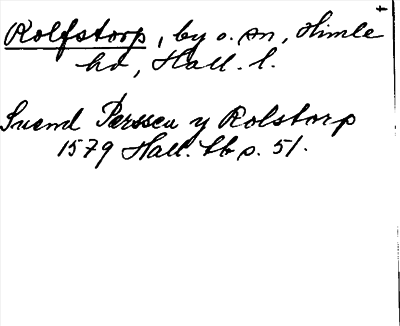 Rolfstorp, by o. sn, Himle
hd, Hall. l.
Suend Perssen y Rolstorp
1579 Hall. lb s. 51.